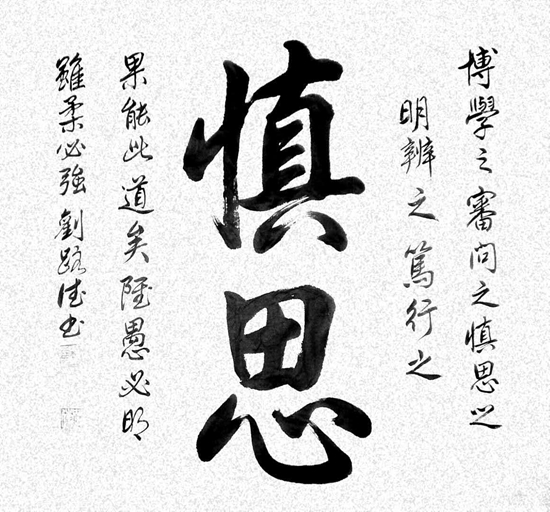 博學之審問之慎思之
明辨之篤行之
慎思
果能此道矣雖愚必明
雖柔必強 劉路書